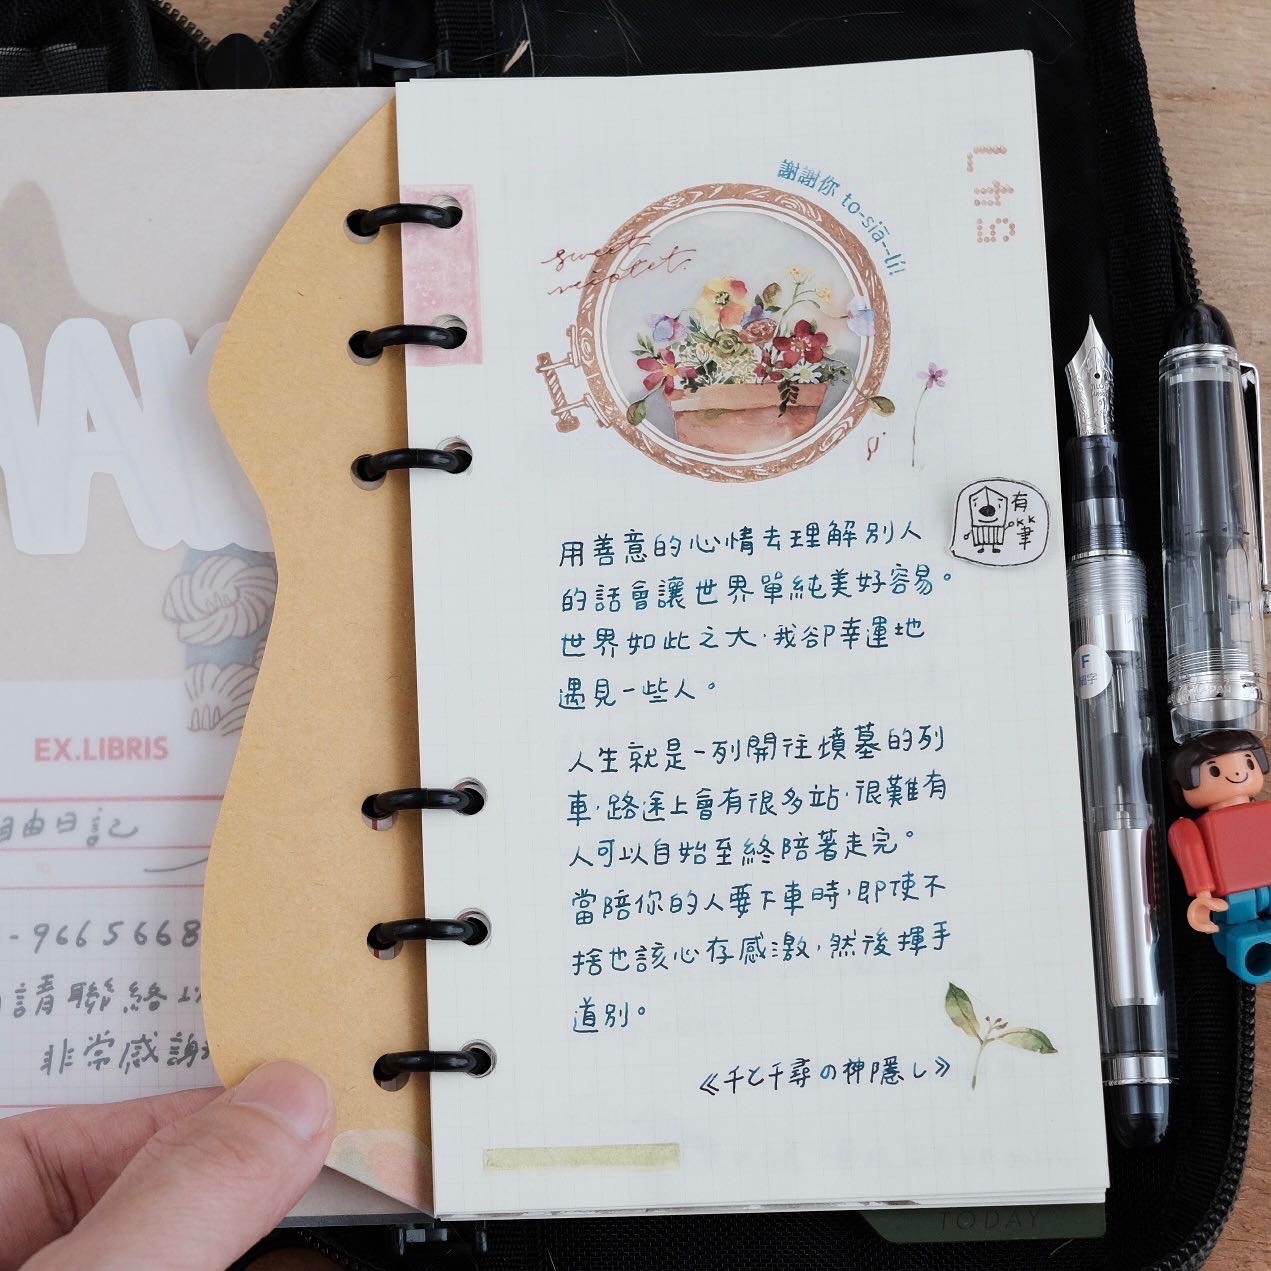 謝謝你 to-siā--lí!
sweet
violet.
有
筆
用善意的心情去理解別人
的話會讓世界單純美好容易。
世界如此之大,我卻幸運地
遇見一些人。
人生就是一列開往墳墓的列
車,路途上會有很多站,很難有
人可以自始至終陪著走完。
當陪你的人要下車時,即使不
捨也該心存感激,然後揮手
道別。
《千と千尋の神隠し》
TODAY
EX.LIBRIS
自由日記
-9665668
請聯絡
非常感謝
F
細字